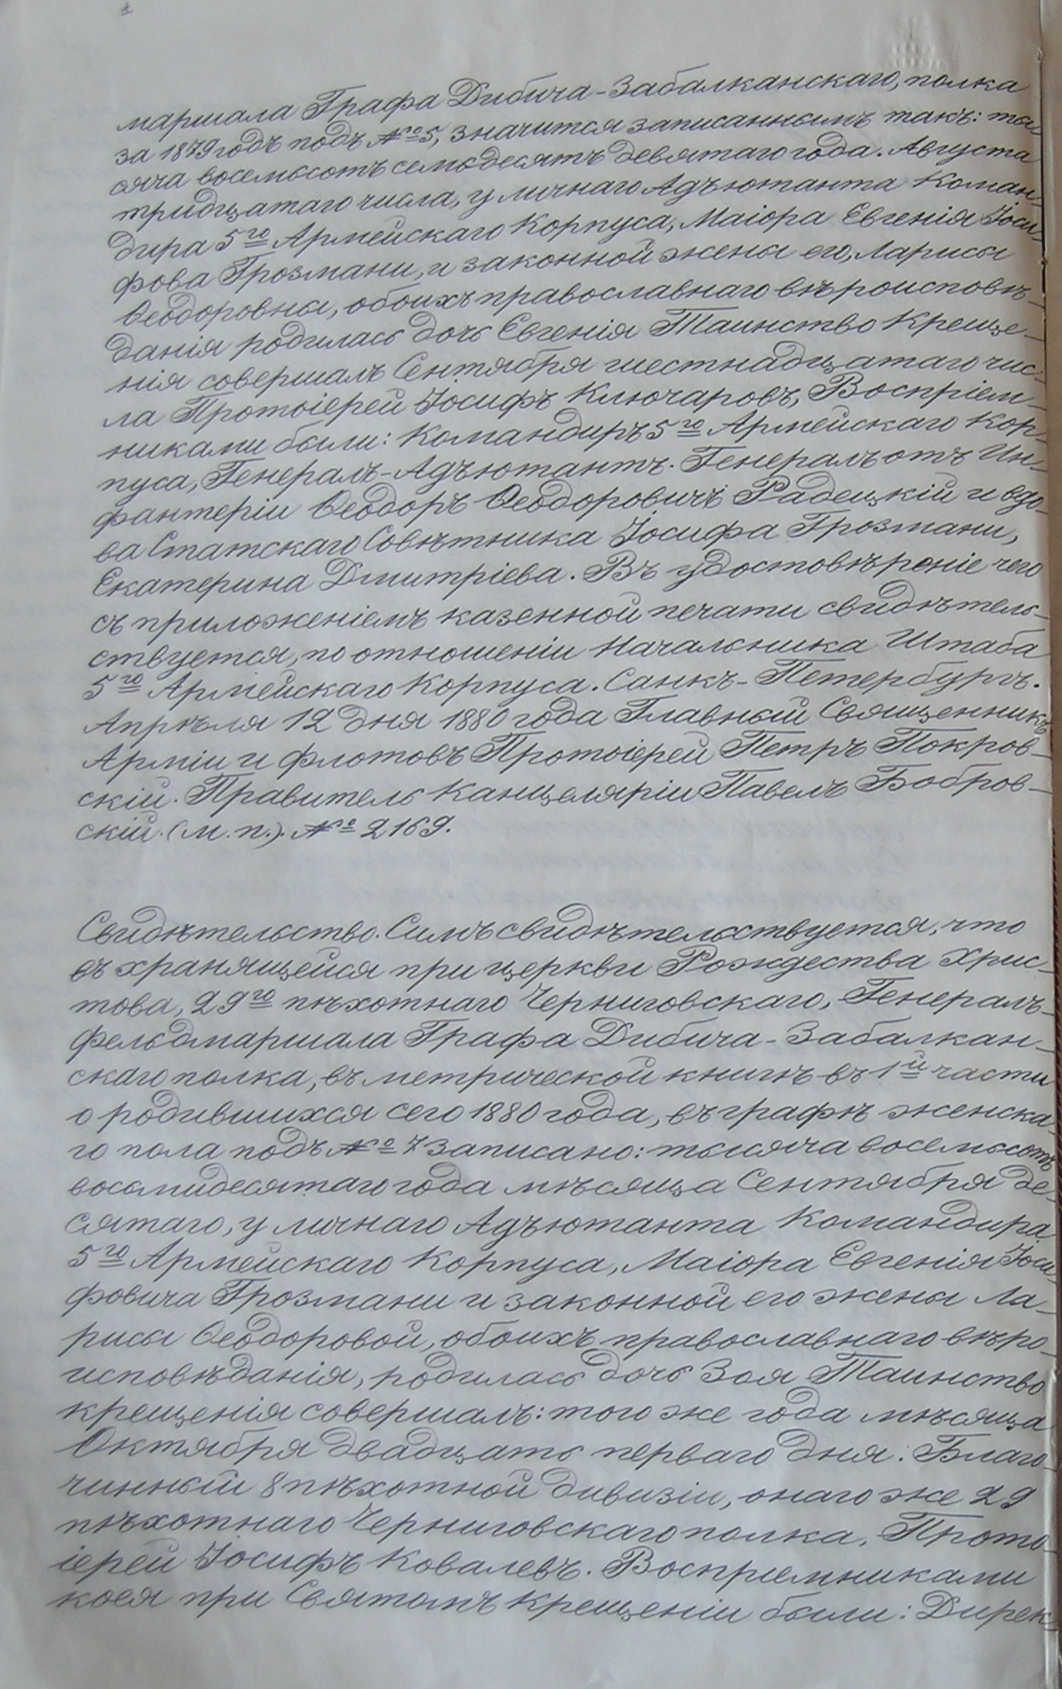 маршала Графа Дибича-Забалканскаго, полка
за 1879 годъ подъ №5, значится записаннымъ такъ: ты-
сяча восемьсотъ семьдесятъ девятаго года. Августа
тридцатаго числа, у личнаго Адъютанта Коман-
дира 5го Армейскаго Корпуса, Маіора Евгенія Іоси-
фова Грозмани, и законной жены его, Ларисы
Ѳеодоровны, обоихъ православнаго вѣроисповѣ-
данія родилась дочь Евгенія Таинство Креще-
нія совершалъ Сентября шестнадцатаго чис-
ла Протоіерей Іосифъ Ключаровъ, Воспріем-
никами были: Командиръ 5го Армейскаго Кор-
пуса, Генералъ-Адъютантъ. Генералъ отъ Ин-
фантеріи Ѳеодоръ Ѳеодоровичъ Радецкій и вдо-
ва Статскаго Совѣтника Іосифа Грозмани,
Екатерина Дмитріева. Въ удостовѣреніе чего
съ приложеніемъ казенной печати свидѣтель-
ствуется, по отношеніи Начальника Штаба
5го Армейскаго Корпуса. Санкъ-Петербургъ.
Апрѣля 12 дня 1880 года Главный Священникъ
Арміи и флотовъ Протоіерей Петръ Покров-
скій. Правитель Канцеляріи Павелъ Бобров-
скій. (м. п.). № 2169.
Свидѣтельство. Симъ свидѣтельствуется, что
въ хранящейся при церкви Рождества Хрис-
това, 29го пѣхотнаго Черниговскаго, Генералъ-
фельдмаршала Графа Дибича-Забалкан-
скаго полка, въ метрической книгѣ въ 1й части
о родившихся сего 1880 года, въ графѣ женска-
го пола подъ № 7 записано: тысяча восемьсотъ
восьмидесятаго года мѣсяца Сентября де-
сятаго, у личнаго Адъютанта Командира
5го Армейскаго Корпуса, Маіора Евгенія Іоси-
фовича Грозмани и законной его жены Ла-
рисы Ѳеодоровой, обоихъ православнаго вѣро-
исповѣданія, родилась дочь Зоя Таинство
крещенія совершалъ: того же года мѣсяца
Октября двадцать перваго дня. Благо-
чинный 8 пѣхотной дивизіи, онаго же 29
пѣхотнаго Черниговскаго полка, Прото-
іерей Іосифъ Ковалевъ. Воспріемниками
коея при Святомъ Крещеніи были: Дирек-